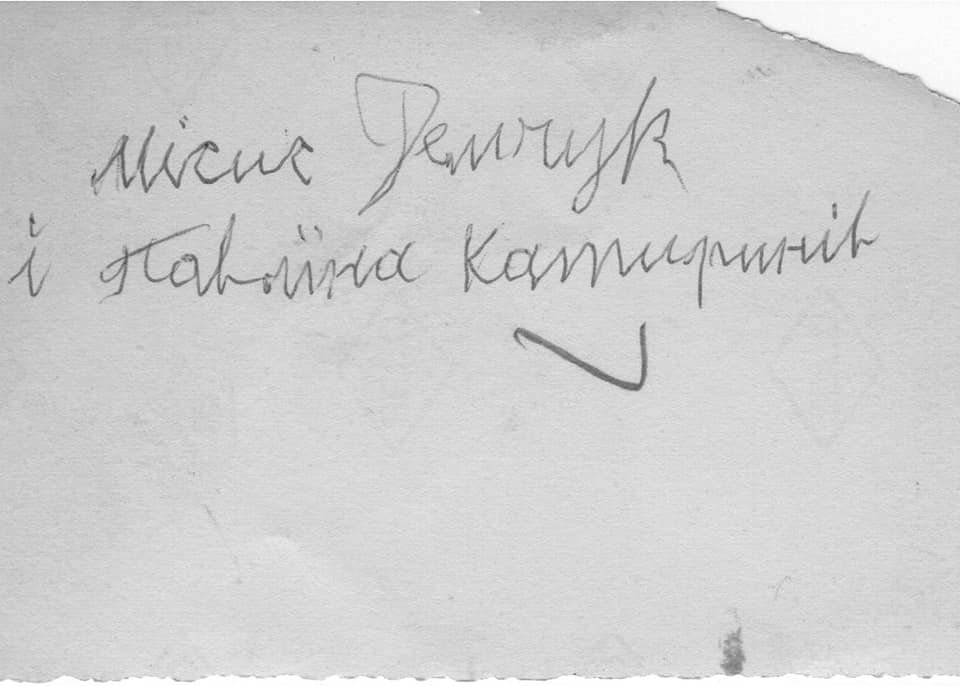 Місис Демчук
і Павлїна Катиринів